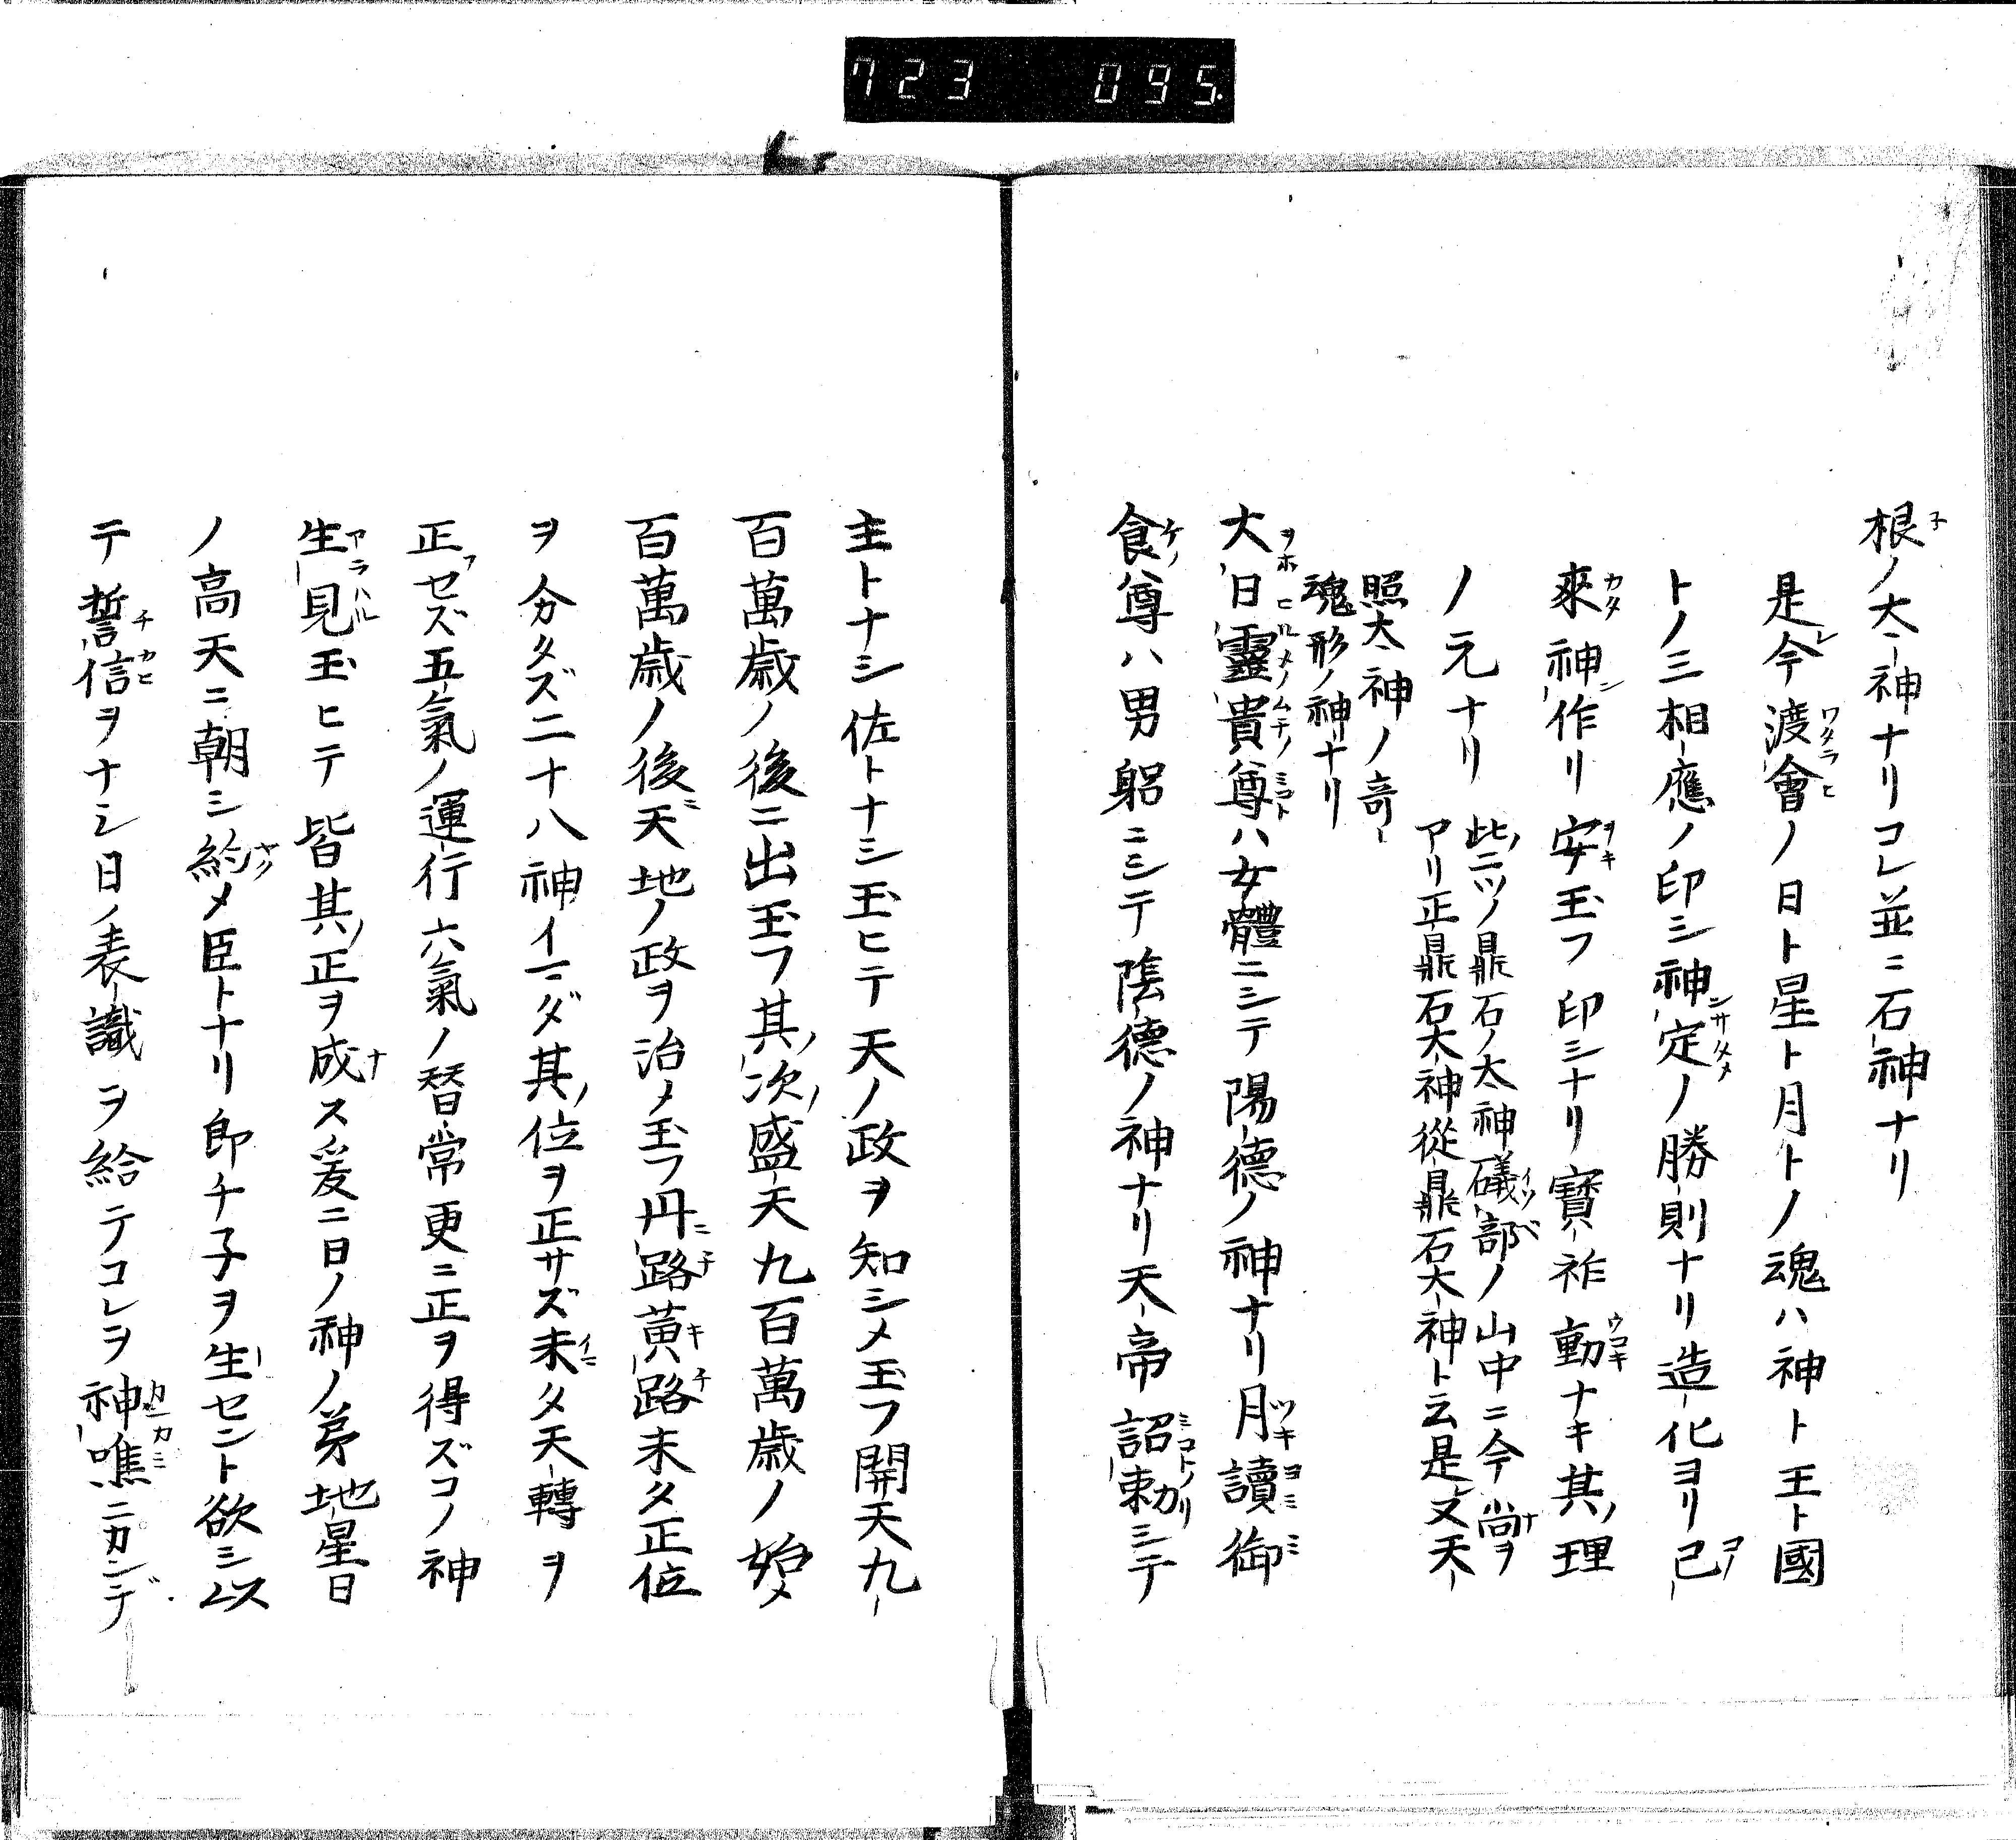 723 095.
根ノ大神ナリコレ並ニ石神ナリ
是今渡會ノ日ト星ト月トノ魂ハ神ト王ト國
トノ三相應ノ印シ神定ノ勝則ナリ造化ヨリ已
來神作リ安玉フ印シナリ寳祚動ナキ其理
ノ元ナリ
此ニツノ鼎石ノ太神礒部ノ山中ニ今尚ヲ
アリ正鼎石大神從鼎石大神ト云是又天
照太神ノ竒
魂形ノ神ナリ
大日靈貴尊ハ女體ニシテ陽德ノ神ナリ月讀御
食尊ハ男躬ニシテ陰德ノ神ナリ天帝詔勅シテ
主トナシ佐トナシ玉ヒテ天ノ政ヲ知シメ玉フ開天九
百萬歳ノ後ニ出玉フ其次盛天九百萬歳ノ始
百萬歳ノ後天地ノ政ヲ治メ玉フ丹路黃路未タ正位
ヲ分タズ二十八神イマダ其位ヲ正サズ未タ天轉ヲ
正セズ五氣ノ運行六氣ノ替常更ニ正ヲ得ズコノ神
生見玉ヒテ皆其正ヲ成ス爰ニ日ノ神ノ弟地星日
ノ高天ニ朝シ約メ臣トナリ即チ子ヲ生セント欲シ以
テ誓信ヲナシ日ノ表識ヲ給テコレヲ神嘺ニカンデ